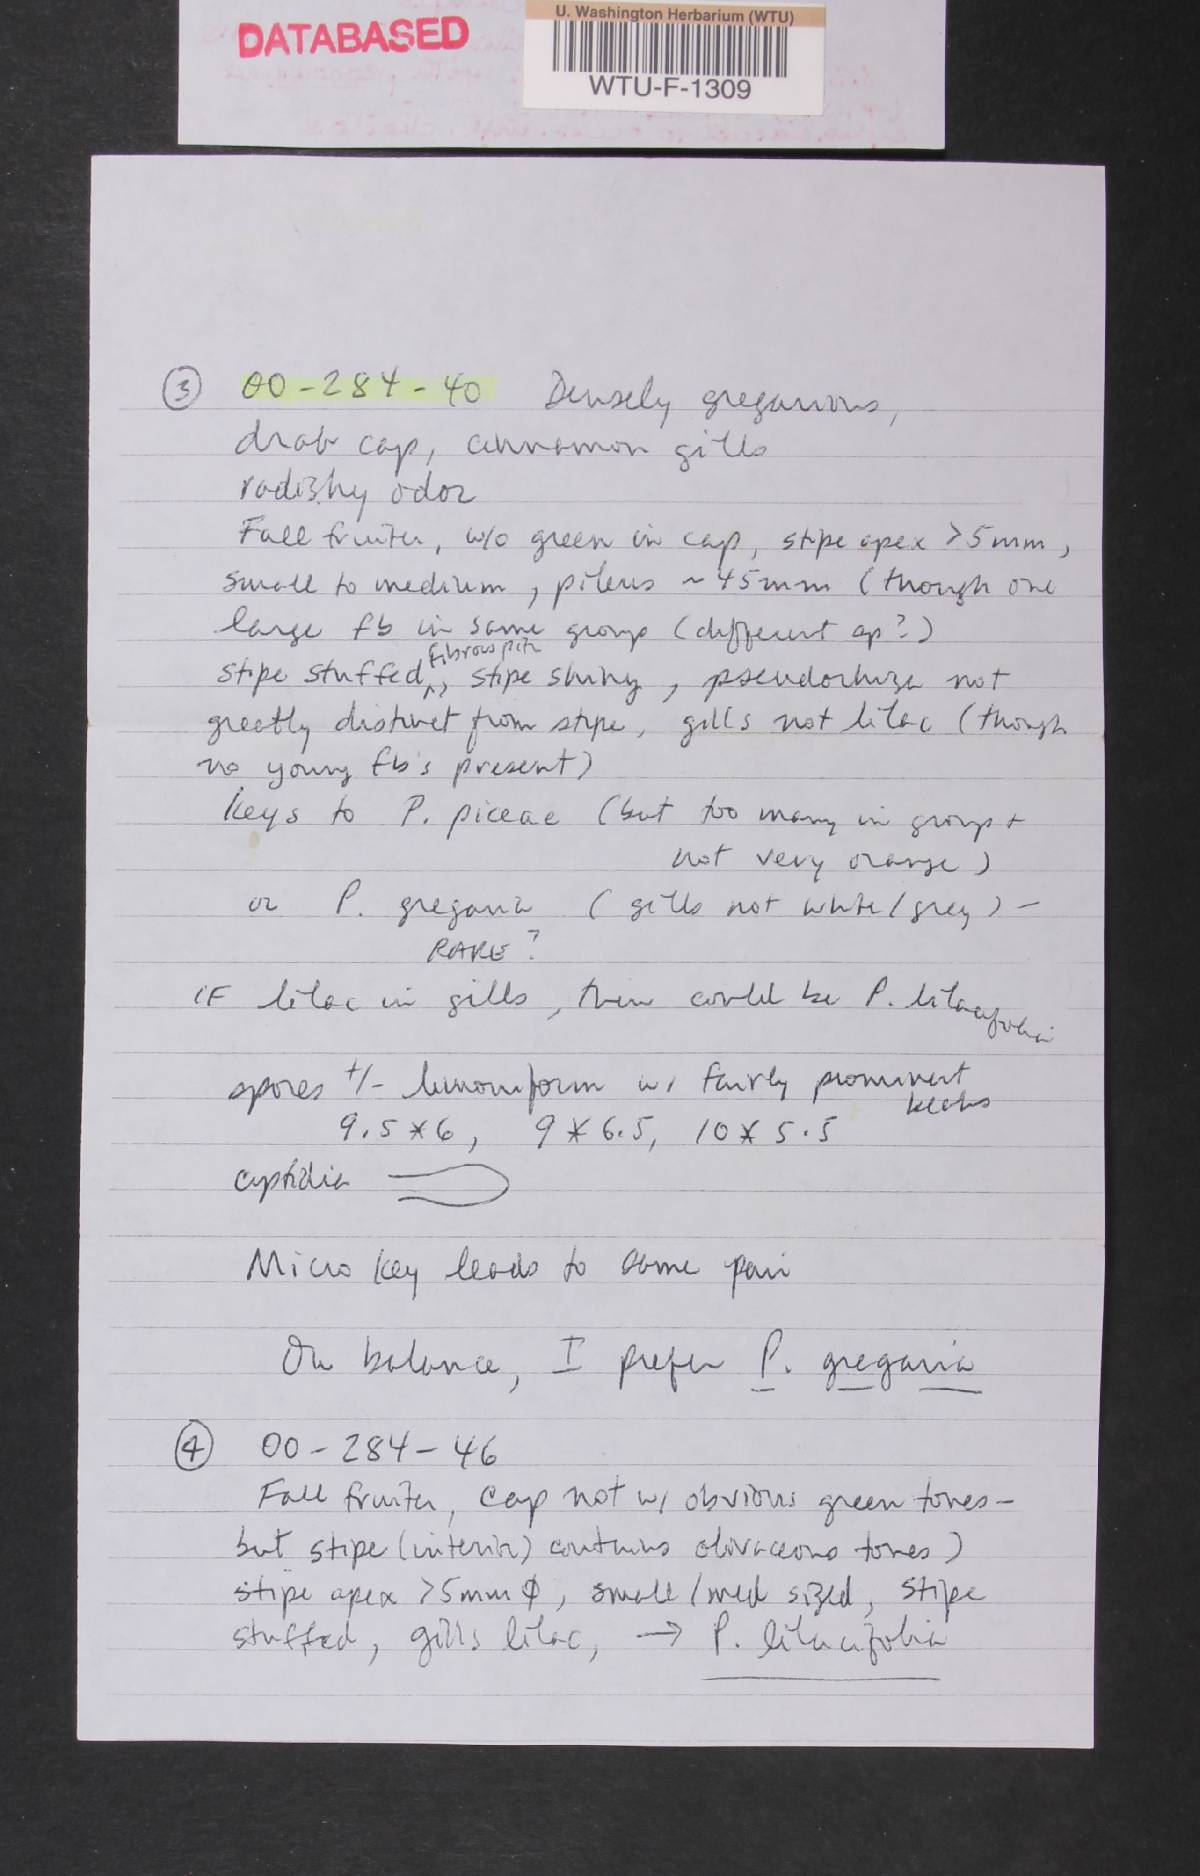 DATABASED
U. Washington Herbarium (WTU)
WTU-F-1309
③ 00-284-40 Densely gregarious,
drab cap, cinnamon gills
radishy odor
Fall fruiter, w/o green in cap, stipe apex >5mm,
small to medium, pileus ~45mm (though one
large fb in same group (different sp?)
fibrous pith
stipe stuffed ^, stipe shiny, pseudorhiza not
greatly distinct from stipe, gills not lilac (though
no young fb's present)
keys to P. piceae (but too many in group +
not very orange)
or P. gregaria (gills not white/grey) -
RARE?
IF lilac in gills, then could be P. lilacifolia
spores +/- limoniform w/ fairly prominent
beaks
9.5*6, 9*6.5, 10*5.5
cystidia
Micro key leads to same pair
On balance, I prefer P. gregaria
④ 00-284-46
Fall fruiter, cap not w/ obvious green tones -
but stipe (interior) contains olivaceous tones)
stipe apex >5mm φ, small/med sized, stipe
stuffed, gills lilac, → P. lilacifolia